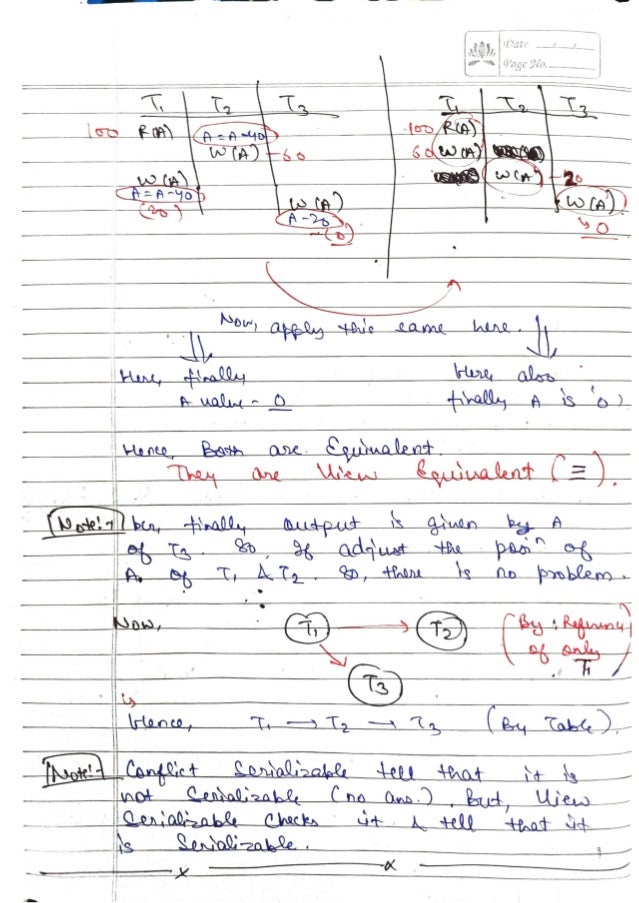 Date
Page No.
T1 T2 T3
100 R(A) A = A-40
W(A) - 60
W(A)
A = A-40
(20)
W(A)
A-20
(0)
T1 T2 T3
100 R(A)
60 W(A)
W(A) - 20
W(A)
0
Now, apply this same here.
Here, finally
A value - 0
Here also
finally A is '0'
Hence, Both are Equivalent.
They are View Equivalent (≡).
Note:- bcz, finally output is given by A
of T3. So, If adjust the posn of
A. of T1 & T2. So, there is no problem.
Now,
T1 → T2
T3
(By: Reference
of only
T1)
is
Hence, T1 → T2 → T3 (By Table).
Note:- Conflict Serializable tell that it is
not Serializable (no ans.). But, View
Serializable checks it & tell that it
is Serializable.
x x